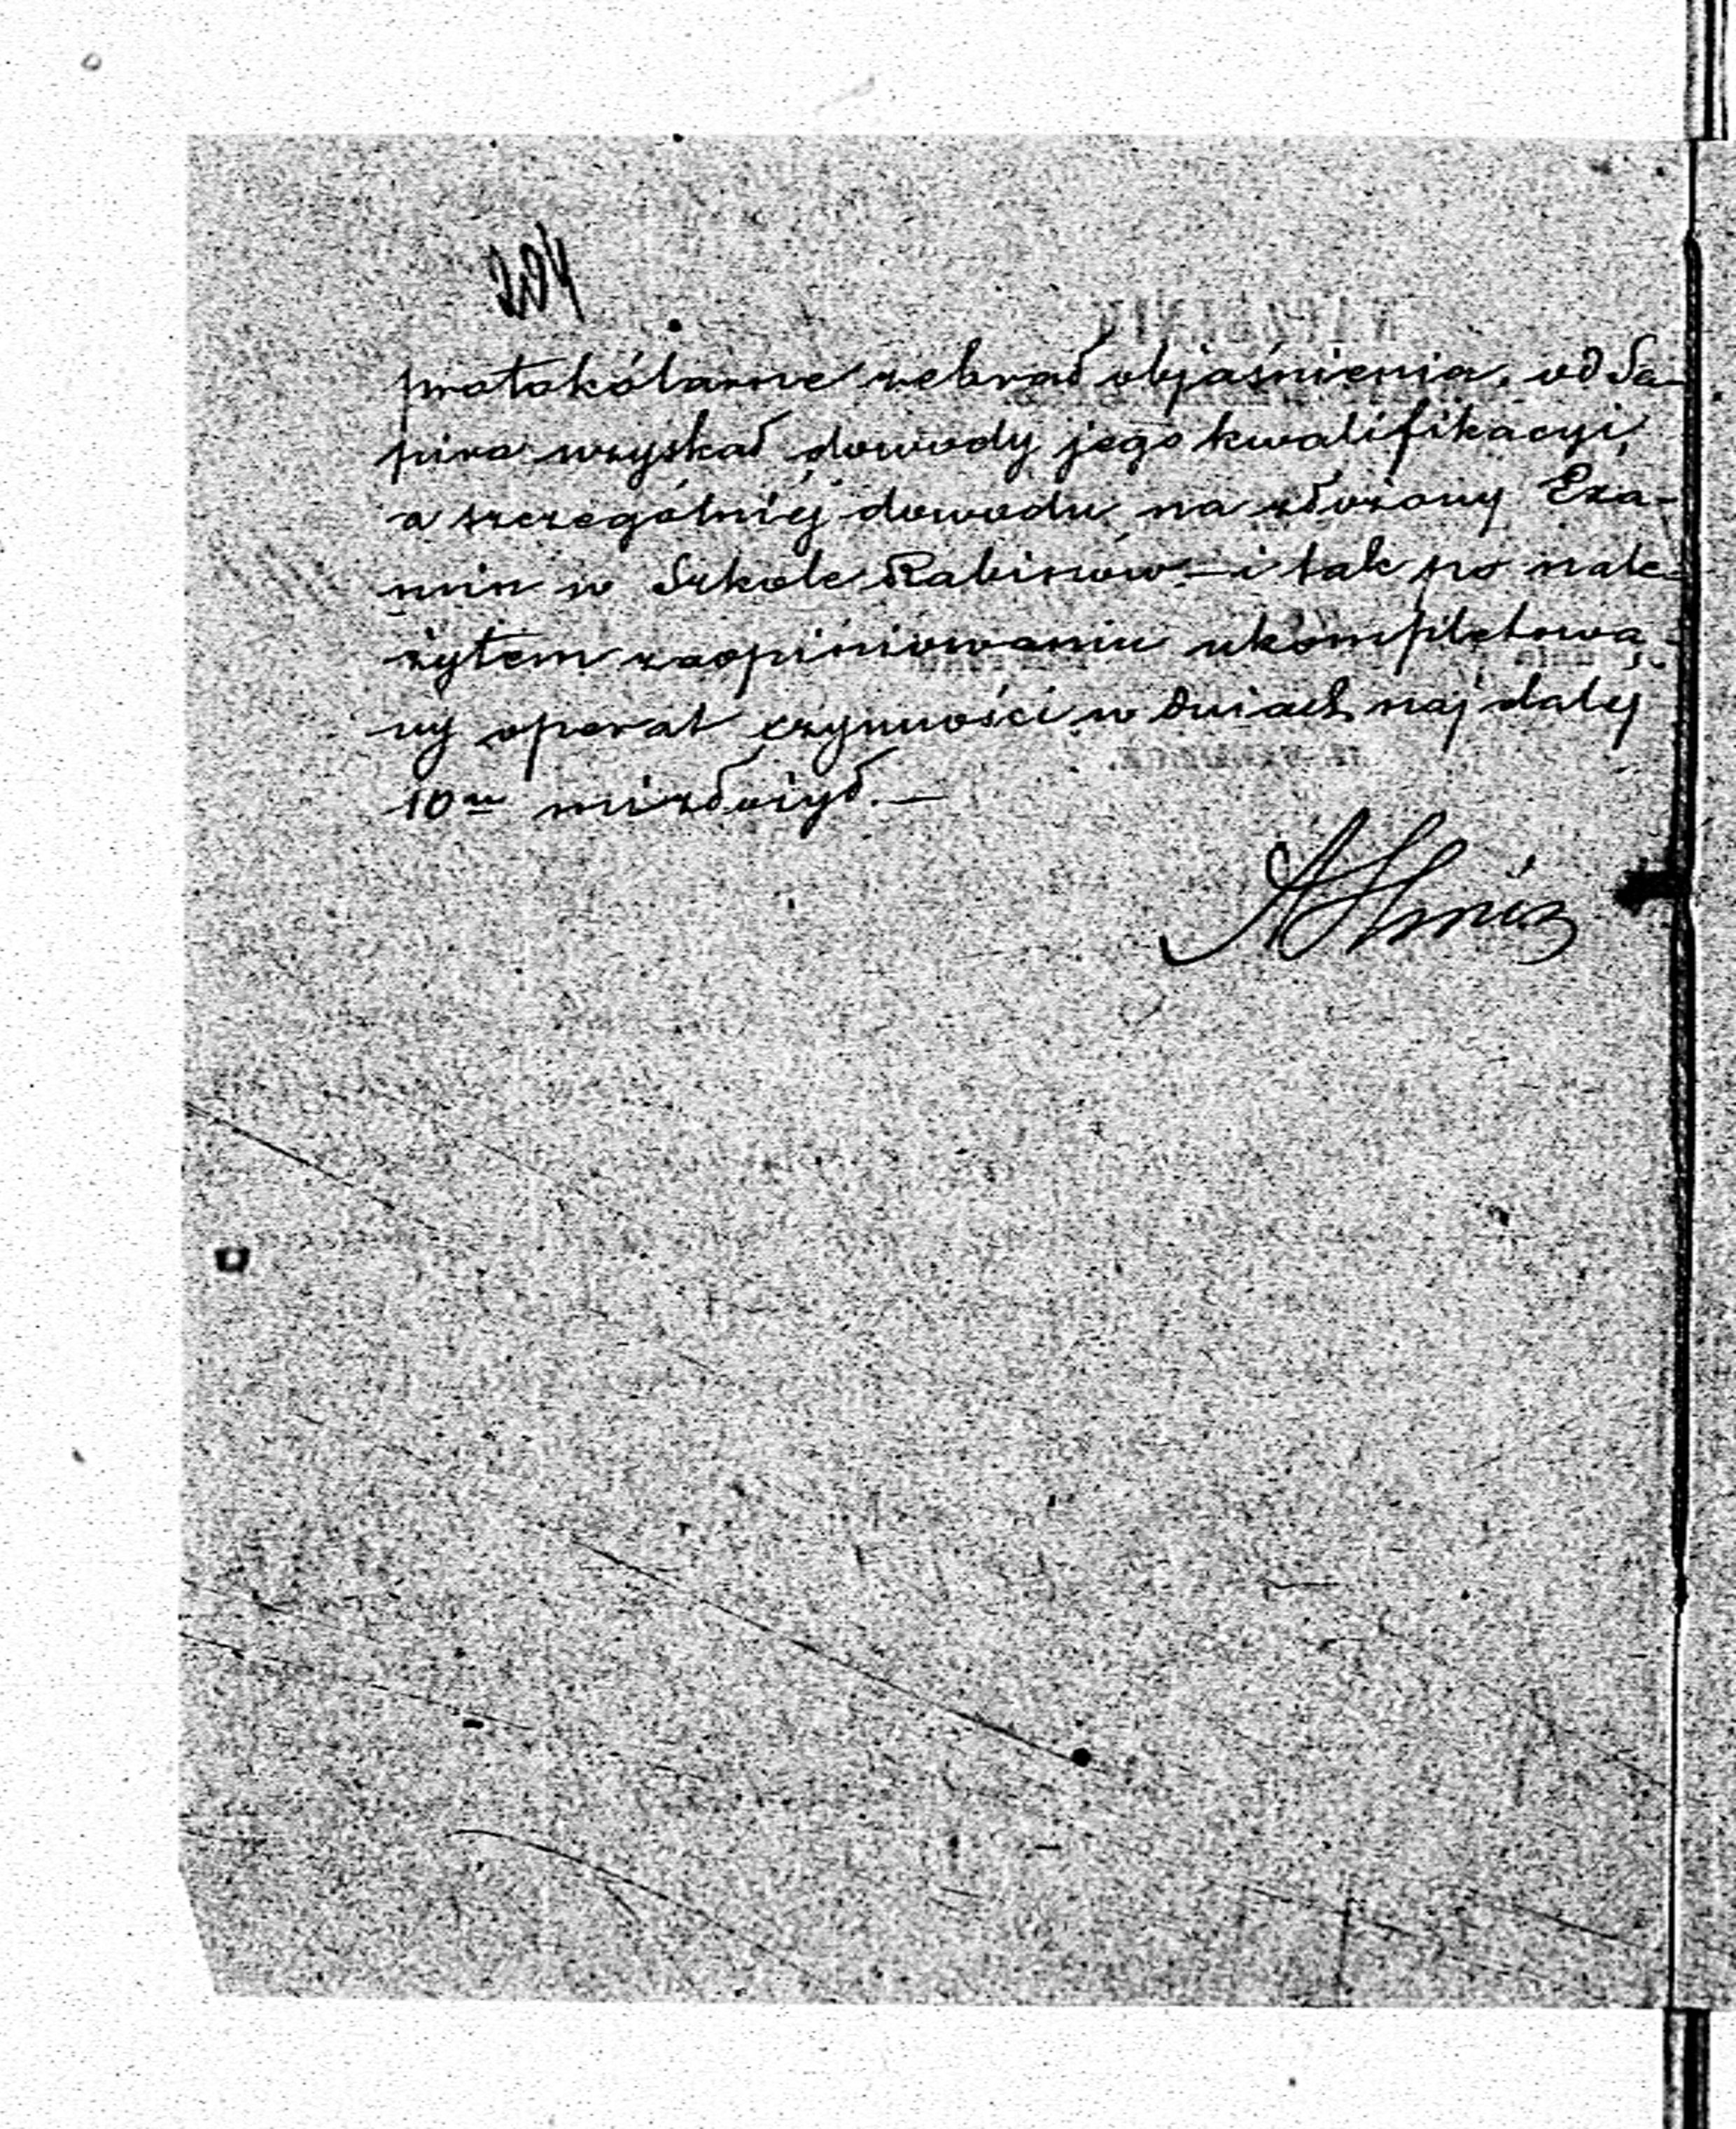 204
protokólarne zebrał objaśnienia, od Sa-
pira uzyskał dowody jego kwalifikacyi,
a szczególniej dowodu na złożony Exa-
min w Szkole Rabinów — i tak po nale-
żytem zaopiniowaniu ukompletowa-
ny operat czynności w dniach naj dalej
10u mi złożył. —